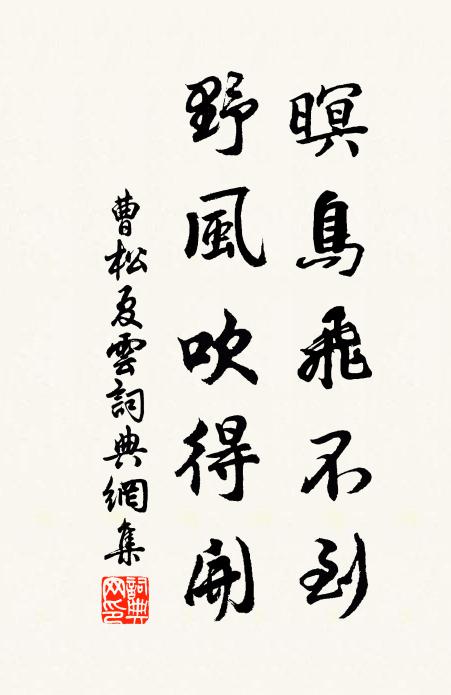 暝鳥飛不到
野風吹得開
曹松夏雲詞典網集
詞典网印